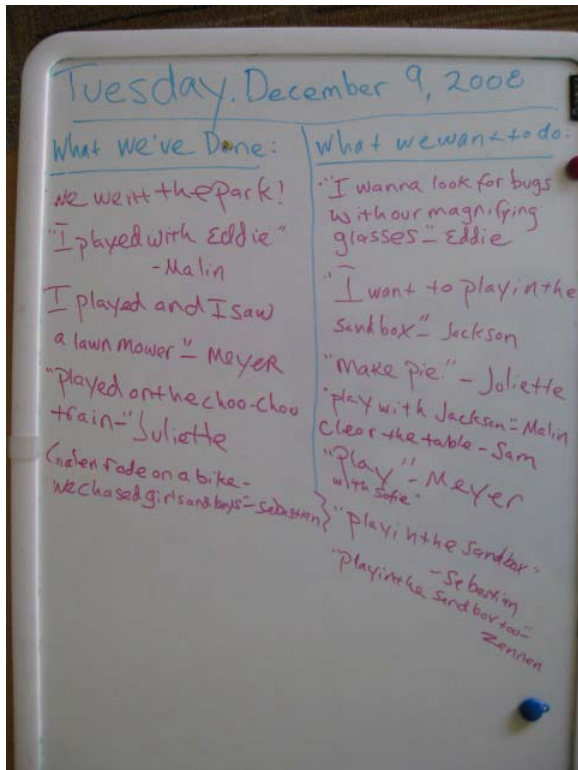 Tuesday, December 9, 2008
What We've Done:
we went the park!
"I played with Eddie"
-Malin
I played and I saw
a lawn mower" - MEYER
"played on the choo-choo
train-" Juliette
rode on a bike-
we chased girls and boys"-Sebastian
What we want to do:
"I wanna look for bugs
with our magnifing
glasses" - Eddie
"I want to play in the
sandbox" - Jackson
"make pie." - Joliette
"play with Jackson" - Malin
clear the table - Sam
"Play" - Meyer
with Sofie"
"play in the sandbox"
-Sebastian
"play in the sandbox too"-
Zennen